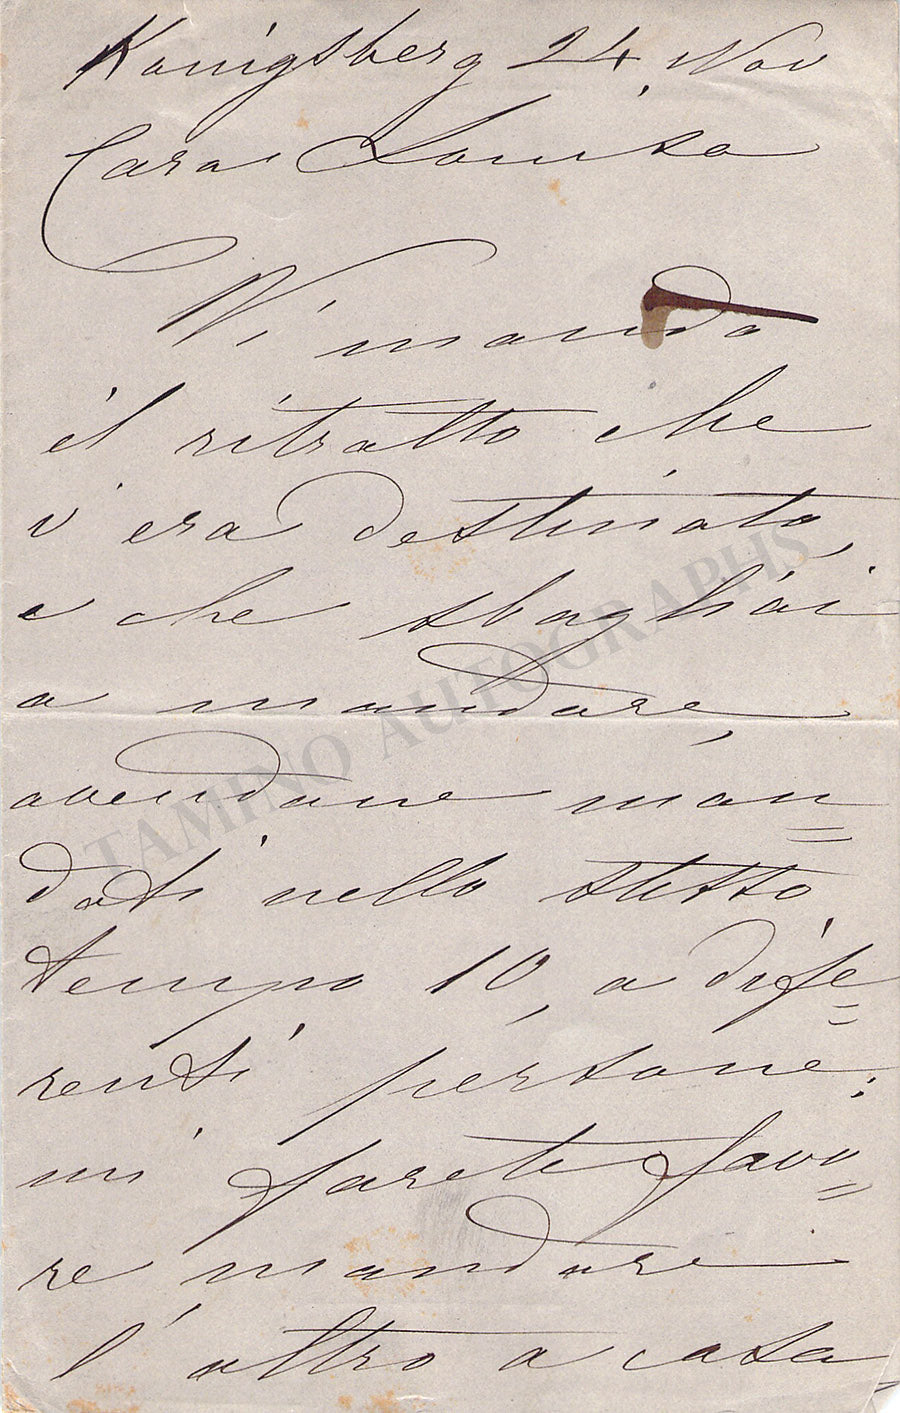 Konigsberg 24, Nov
Cara Louisa
Vi mando
il ritratto che
v' era destinato,
e che sbagliai
a mandare,
avendone man=
dati nello stesso
tempo 10, a dife=
renti persone;
mi farete favo=
re mandare
l' altro a casa
TAMINO AUTOGRAPHS